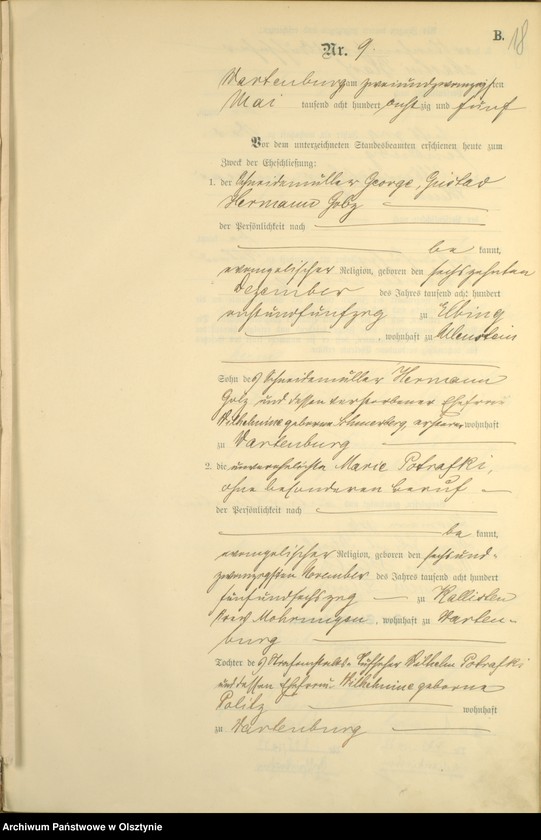 B.
18
Nr. 9.
Wartenburg am zweiundzwanzigsten
Mai tausend acht hundert achtzig und fünf
Vor dem unterzeichneten Standesbeamten erschienen heute zum
Zweck der Eheschließung:
1. der Schneidemüller George, Gustav
Hermann Golz
der Persönlichkeit nach
be kannt,
evangelischer Religion, geboren den sechszehnten
Dezember des Jahres tausend acht hundert
achtundfünfzig zu Elbing
, wohnhaft zu Allenstein
Sohn des Schneidemüller Hermann
Golz und dessen verstorbener Ehefrau
Wilhelmine geborene ersterer wohnhaft
zu Wartenburg
2. die unverehelichte Marie Potrafki,
ohne besonderen Beruf
der Persönlichkeit nach
be kannt,
evangelischer Religion, geboren den sechsund-
zwanzigsten November des Jahres tausend acht hundert
fünfundsechszig zu Kallisten
Kreis Mohrungen, wohnhaft zu Warten-
burg
Tochter des Strafanstalts-Aufseher Wilhelm Potrafki
und dessen Ehefrau Wilhelmine geborene
Politz wohnhaft
zu Wartenburg
Archiwum Państwowe w Olsztynie